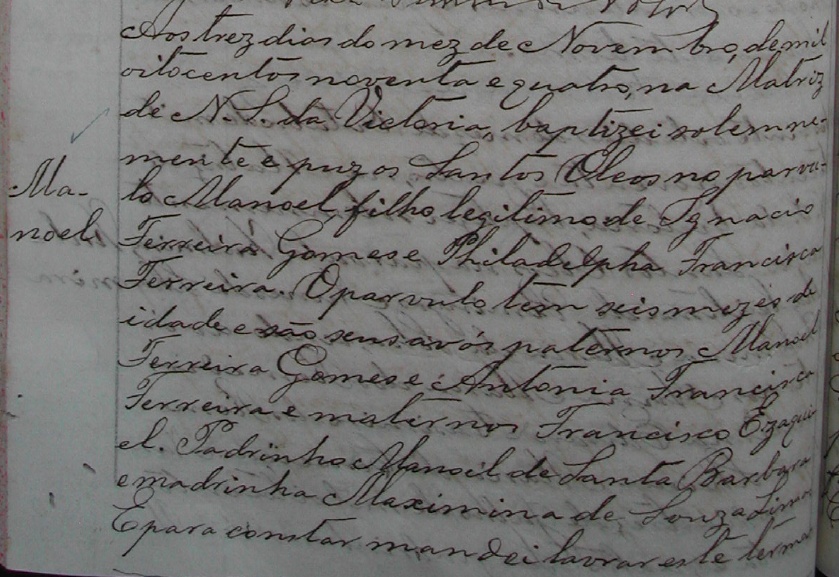 Aos trez dias do mez de Novembro, de mil
oitocentos noventa e quatro, na Matriz
de N. S. da Victoria, baptizei solemne-
mente e puz os Santos Oleos no parvu-
Ma-
noel
lo Manoel filho legitimo de Ignacio
Ferreira Gomes e Philadelpha Francisca
Ferreira. O parvulo tem seis mezes de
idade e são seus avós paternos Manoel
Ferreira Gomes e Antonia Francisca
Ferreira e maternos Francisco Ezaqui
el. Padrinho Manoel de Santa Barbara
e madrinha Maximina de Souza Lima
E para constar mandei lavrar este termo